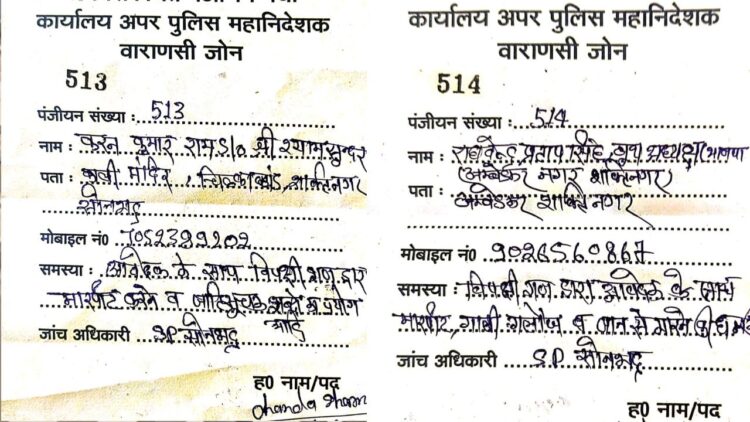 कार्यालय अपर पुलिस महानिदेशक
वाराणसी जोन
513
पंजीयन संख्या : 513
नाम : करन कुमार राम S/o श्री श्याम सुन्दर
पता : काली मंदिर, चिल्काडांड, शक्तिनगर
सोनभद्र
मोबाइल नं0 7052389202
समस्या : आवेदक के साथ विपक्षी गण द्वारा
मारपीट करने व जातिसूचक शब्दों का प्रयोग
जांच अधिकारी : S.P. सोनभद्र
ह0 नाम/पद
कार्यालय अपर पुलिस महानिदेशक
वाराणसी जोन
514
पंजीयन संख्या : 514
नाम : राघवेन्द्र प्रताप सिंह (भाजपा
पता : (अम्बेडकर नगर शक्तिनगर)
अम्बेडकर शक्तिनगर
मोबाइल नं0 9026560867
समस्या : विपक्षी गण द्वारा आवेदक के साथ
मारपीट, गाली गलौज व जान से मारने की धमकी
जांच अधिकारी : S.P. सोनभद्र
ह0 नाम/पद